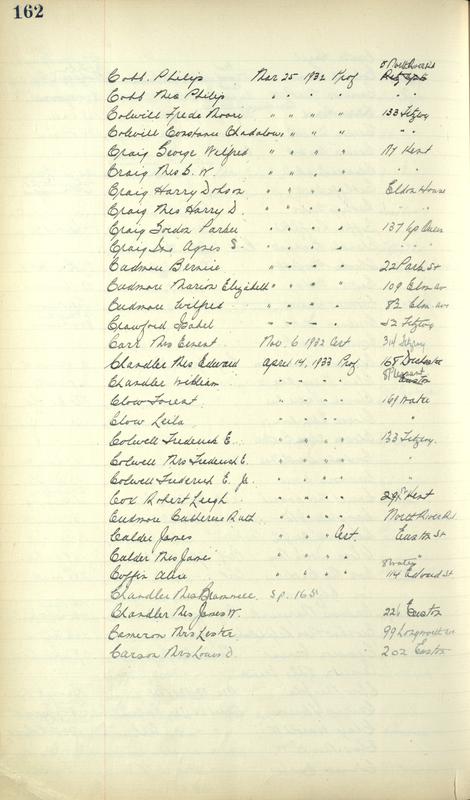 162
Cobb. Philip Mar 25 1932 Prof North River Rd
Cobb Mrs Philip " " " " "
Colwill Frede Moore " " " " 133 Fitzroy
Colwill Constance " " " " "
Craig George Wilfred " " " " Kent
Craig Mrs G. W. " " " " "
Craig Harry Dobson " " " " Eldon House
Craig Mrs Harry D. " " " " "
Craig Gordon Parker " " " " 137 Up Queen
Craig Agnes S. " " " " "
Cudmore Bernice " " " " 22 Park St
Cudmore Marion Elizabeth " " " " 109 Elm Av
Cudmore Wilfred " " " " 82 Elm Ave
Crawford Isabel " " " " 52 Fitzroy
Carr Mrs Ernest Nov. 6 1932 Cert 314 Fitzroy
Chandler Mrs Edward April 14, 1933 Prof 168 Dorchester
Chandler William " " " " Pleasant Euston
Clow Forest " " " " 169 Water
Clow Leila " " " " "
Colwell Frederick E. " " " " 133 Fitzroy.
Colwell Mrs Frederick E. " " " " "
Colwell Frederick E. Jr. " " " " "
Cox Robert Leigh " " " " Kent
Cudmore Catherine Ruth " " " " North River Rd
Calder James " " " Cert. Euston St
Calder Mrs James " " " " "
Coffin Alice " " " " 114 Edward St
Chandler Mrs Sp. 16 St
Chandler Mrs James W. 226 Euston
Cameron Mrs Lester 99 Longworth Ave
Carson Mrs Louis D. 202 Euston